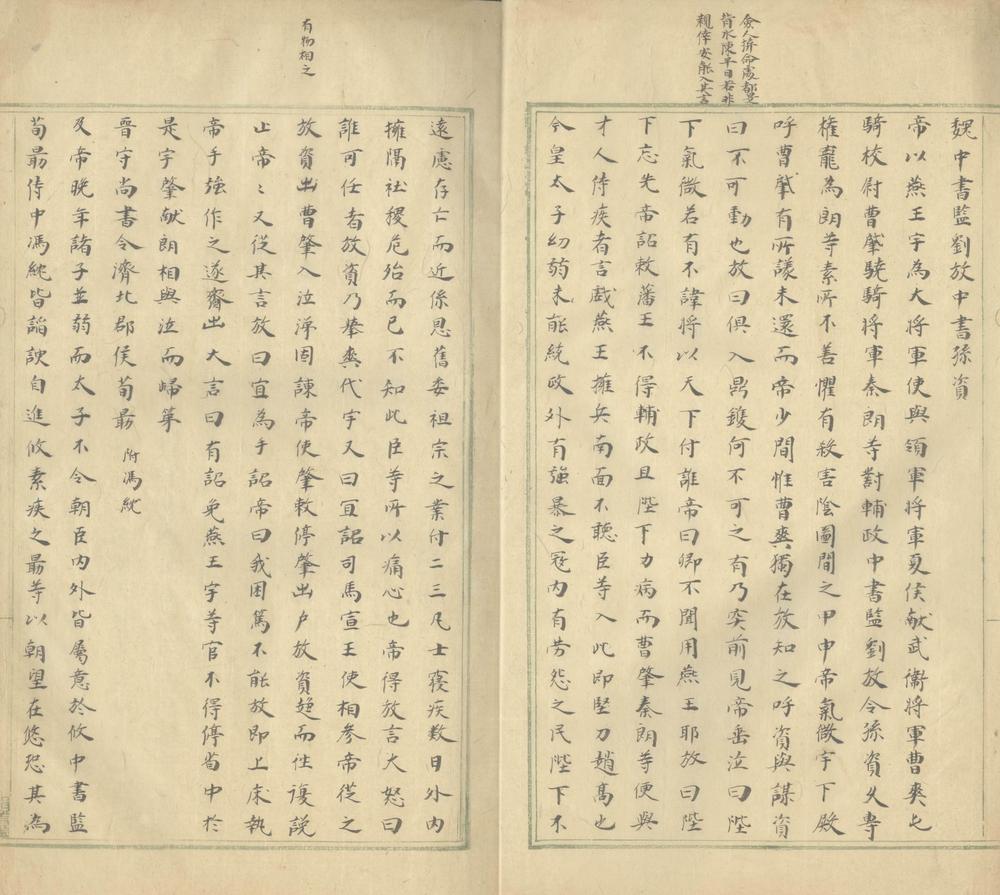 魏中書監劉放中書孫資
帝以燕王宇為大將軍使與領軍將軍夏侯献武衛將軍曹爽屯
騎校尉曹肇驍騎將軍秦朗等對輔政中書監劉放令孫資久專
權寵為朗等素所不善懼有後害陰圖間之甲申帝氣微宇下殿
呼曹肇有所議未還而帝少間惟曹爽獨在放知之呼資與謀資
曰不可動也放曰俱入鼎鑊何不可之有乃突前見帝垂泣曰陛
下氣微若有不諱將以天下付誰帝曰卿不聞用燕王耶放曰陛
下忘先帝詔敕藩王不得輔政且陛下方病而曹肇秦朗等便與
才人侍疾者言戲燕王擁兵南面不聽臣等入此即豎刀趙高也
今皇太子幼弱未能統政外有強暴之寇內有勞怨之民陛下不
僉人拚命處都是
背水陳平日若非
親倖安能入其言
遠慮存亡而近係恩舊委祖宗之業付二三凡士寢疾数日外內
擁隔社稷危殆而己不知此臣等所以痛心也帝得放言大怒曰
誰可任者放資乃舉爽代宇又曰宜詔司馬宣王使相參帝從之
放資出曹肇入泣涕固諫帝使肇敕停肇出户放資趨而往復説
止帝〻又從其言放曰宜為手詔帝曰我困篤不能放即上床執
帝手強作之遂齎出大言曰有詔免燕王宇等官不得停省中於
是宇肇献朗相與泣而歸第
晉守尚書令濟北郡侯荀勗 附馮紞
及帝晚年諸子並弱而太子不令朝臣內外皆屬意於攸中書監
荀勗侍中馮紞皆諂諛自進攸素疾之勗等以朝望在攸恐其為
有物相之